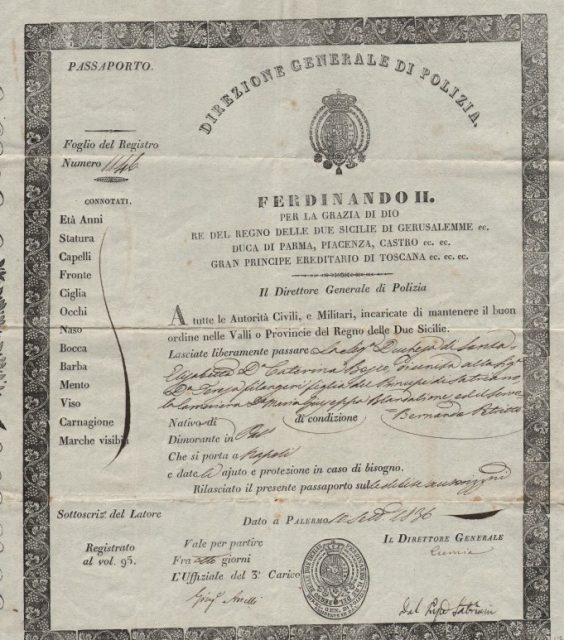 PASSAPORTO.
DIREZIONE GENERALE DI POLIZIA.
Foglio del Registro
Numero 1146
CONNOTATI.
Età Anni
Statura
Capelli
Fronte
Ciglia
Occhi
Naso
Bocca
Barba
Mento
Viso
Carnagione
Marche visibili
FERDINANDO II.
PER LA GRAZIA DI DIO
RE DEL REGNO DELLE DUE SICILIE DI GERUSALEMME ec.
DUCA DI PARMA, PIACENZA, CASTRO ec. ec.
GRAN PRINCIPE EREDITARIO DI TOSCANA ec. ec. ec.
Il Direttore Generale di Polizia
A tutte le Autorità Civili, e Militari, incaricate di mantenere il buon
ordine nelle Valli o Provincie del Regno delle Due Sicilie.
Lasciate liberamente passare La Sig.a Duchessa di Santa
Elisabetta D.a Caterina unita alla Sig.a
D.a Teresa Filangeri figlia del Principe di Satriano
la cameriera D.a Maria Giuseppa ed il Serve
Nativo di di condizione Bernardo
Dimorante in
Che si porta a Napoli
e date le ajuto e protezione in caso di bisogno.
Rilasciato il presente passaporto sul
Sottoscriz. del Latore
Dato a PALERMO 12 Sett. 1836
Registrato
al vol. 95.
Vale per partire
Fra otto giorni
L'Uffiziale del 3° Carico
IL DIRETTORE GENERALE